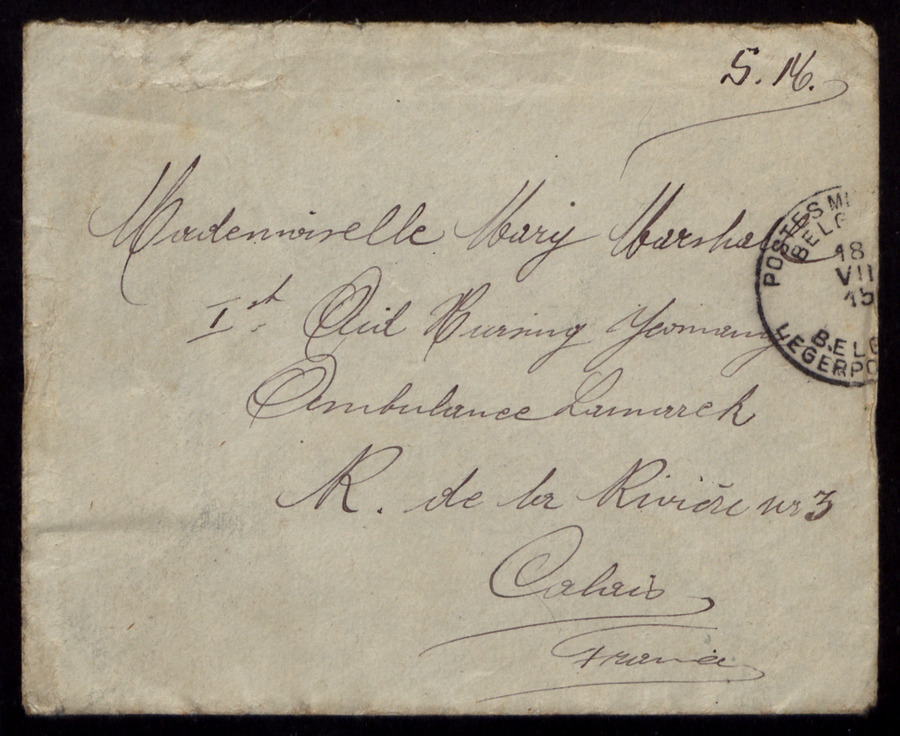 S. M.
Mademoiselle Mary Marshall
1st Aid Nursing Yeomany
Ambulance Lamarck
R. de la Rivière nr 3
Calais
France
POSTES MI
BELG
18
VII
15
BELG
LEGERPO